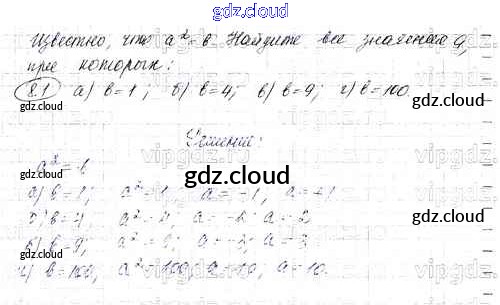 gdz.cloud
Известно, что a² = b. Найдите все значения a,
при которых: gdz.cloud
8.1 а) b=1; б) b=4; в) b=9; г) b=100.
gdz.cloud
Решение:
a² = b gdz.cloud
а) b=1; a²=1, a=-1, a=1
б) b=4 a²=4 a=-2 a=2 gdz.cloud
в) b=9; a²=9; a=-3; a=3
г) b=100, a²=100, a=-10, a=10.
gdz.cloud